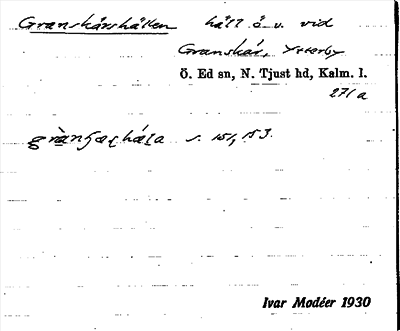 Granskärshällen häll ö. v. vid
Granskär, Ytterby
Ö. Ed sn, N. Tjust hd, Kalm. l.
271 a
s. 151, 153.
Ivar Modéer 1930